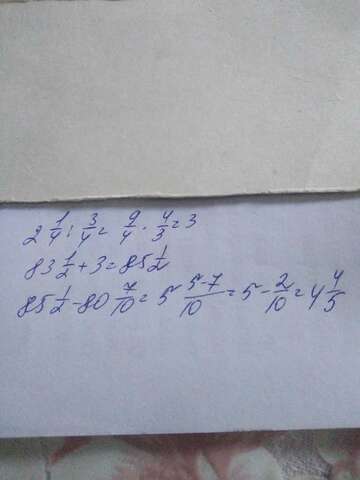 2 1/4 : 3/4 = 9/4 · 4/3 = 3
83 1/2 + 3 = 85 1/2
85 1/2 - 80 7/10 = 5 5-7/10 = 5 - 2/10 = 4 4/5